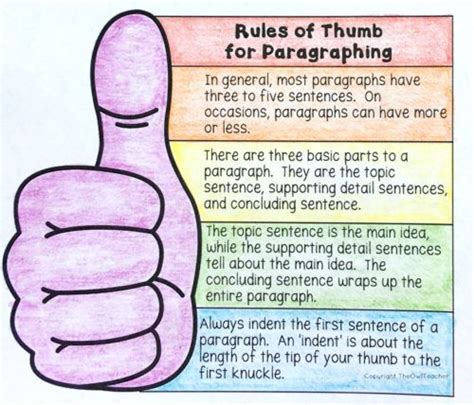 Rules of Thumb
for Paragraphing
In general, most paragraphs have
three to five sentences. On
occasions, paragraphs can have more
or less.
There are three basic parts to a
paragraph. They are the topic
sentence, supporting detail sentences,
and concluding sentence.
The topic sentence is the main idea,
while the supporting detail sentences
tell about the main idea. The
concluding sentence wraps up the
entire paragraph.
Always indent the first sentence of a
paragraph. An 'indent' is about the
length of the tip of your thumb to the
first knuckle.
Copyright TheOwlTeacher